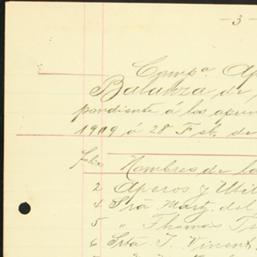 - 3 -
Compª Ap
Balanza de
pondiente á los apun
1919 á 28 Feb. de
folio Nombres de la
2 Aperos y Util
4 Srá Marg. del
5 " Thomas
6 Srta T. Vincent